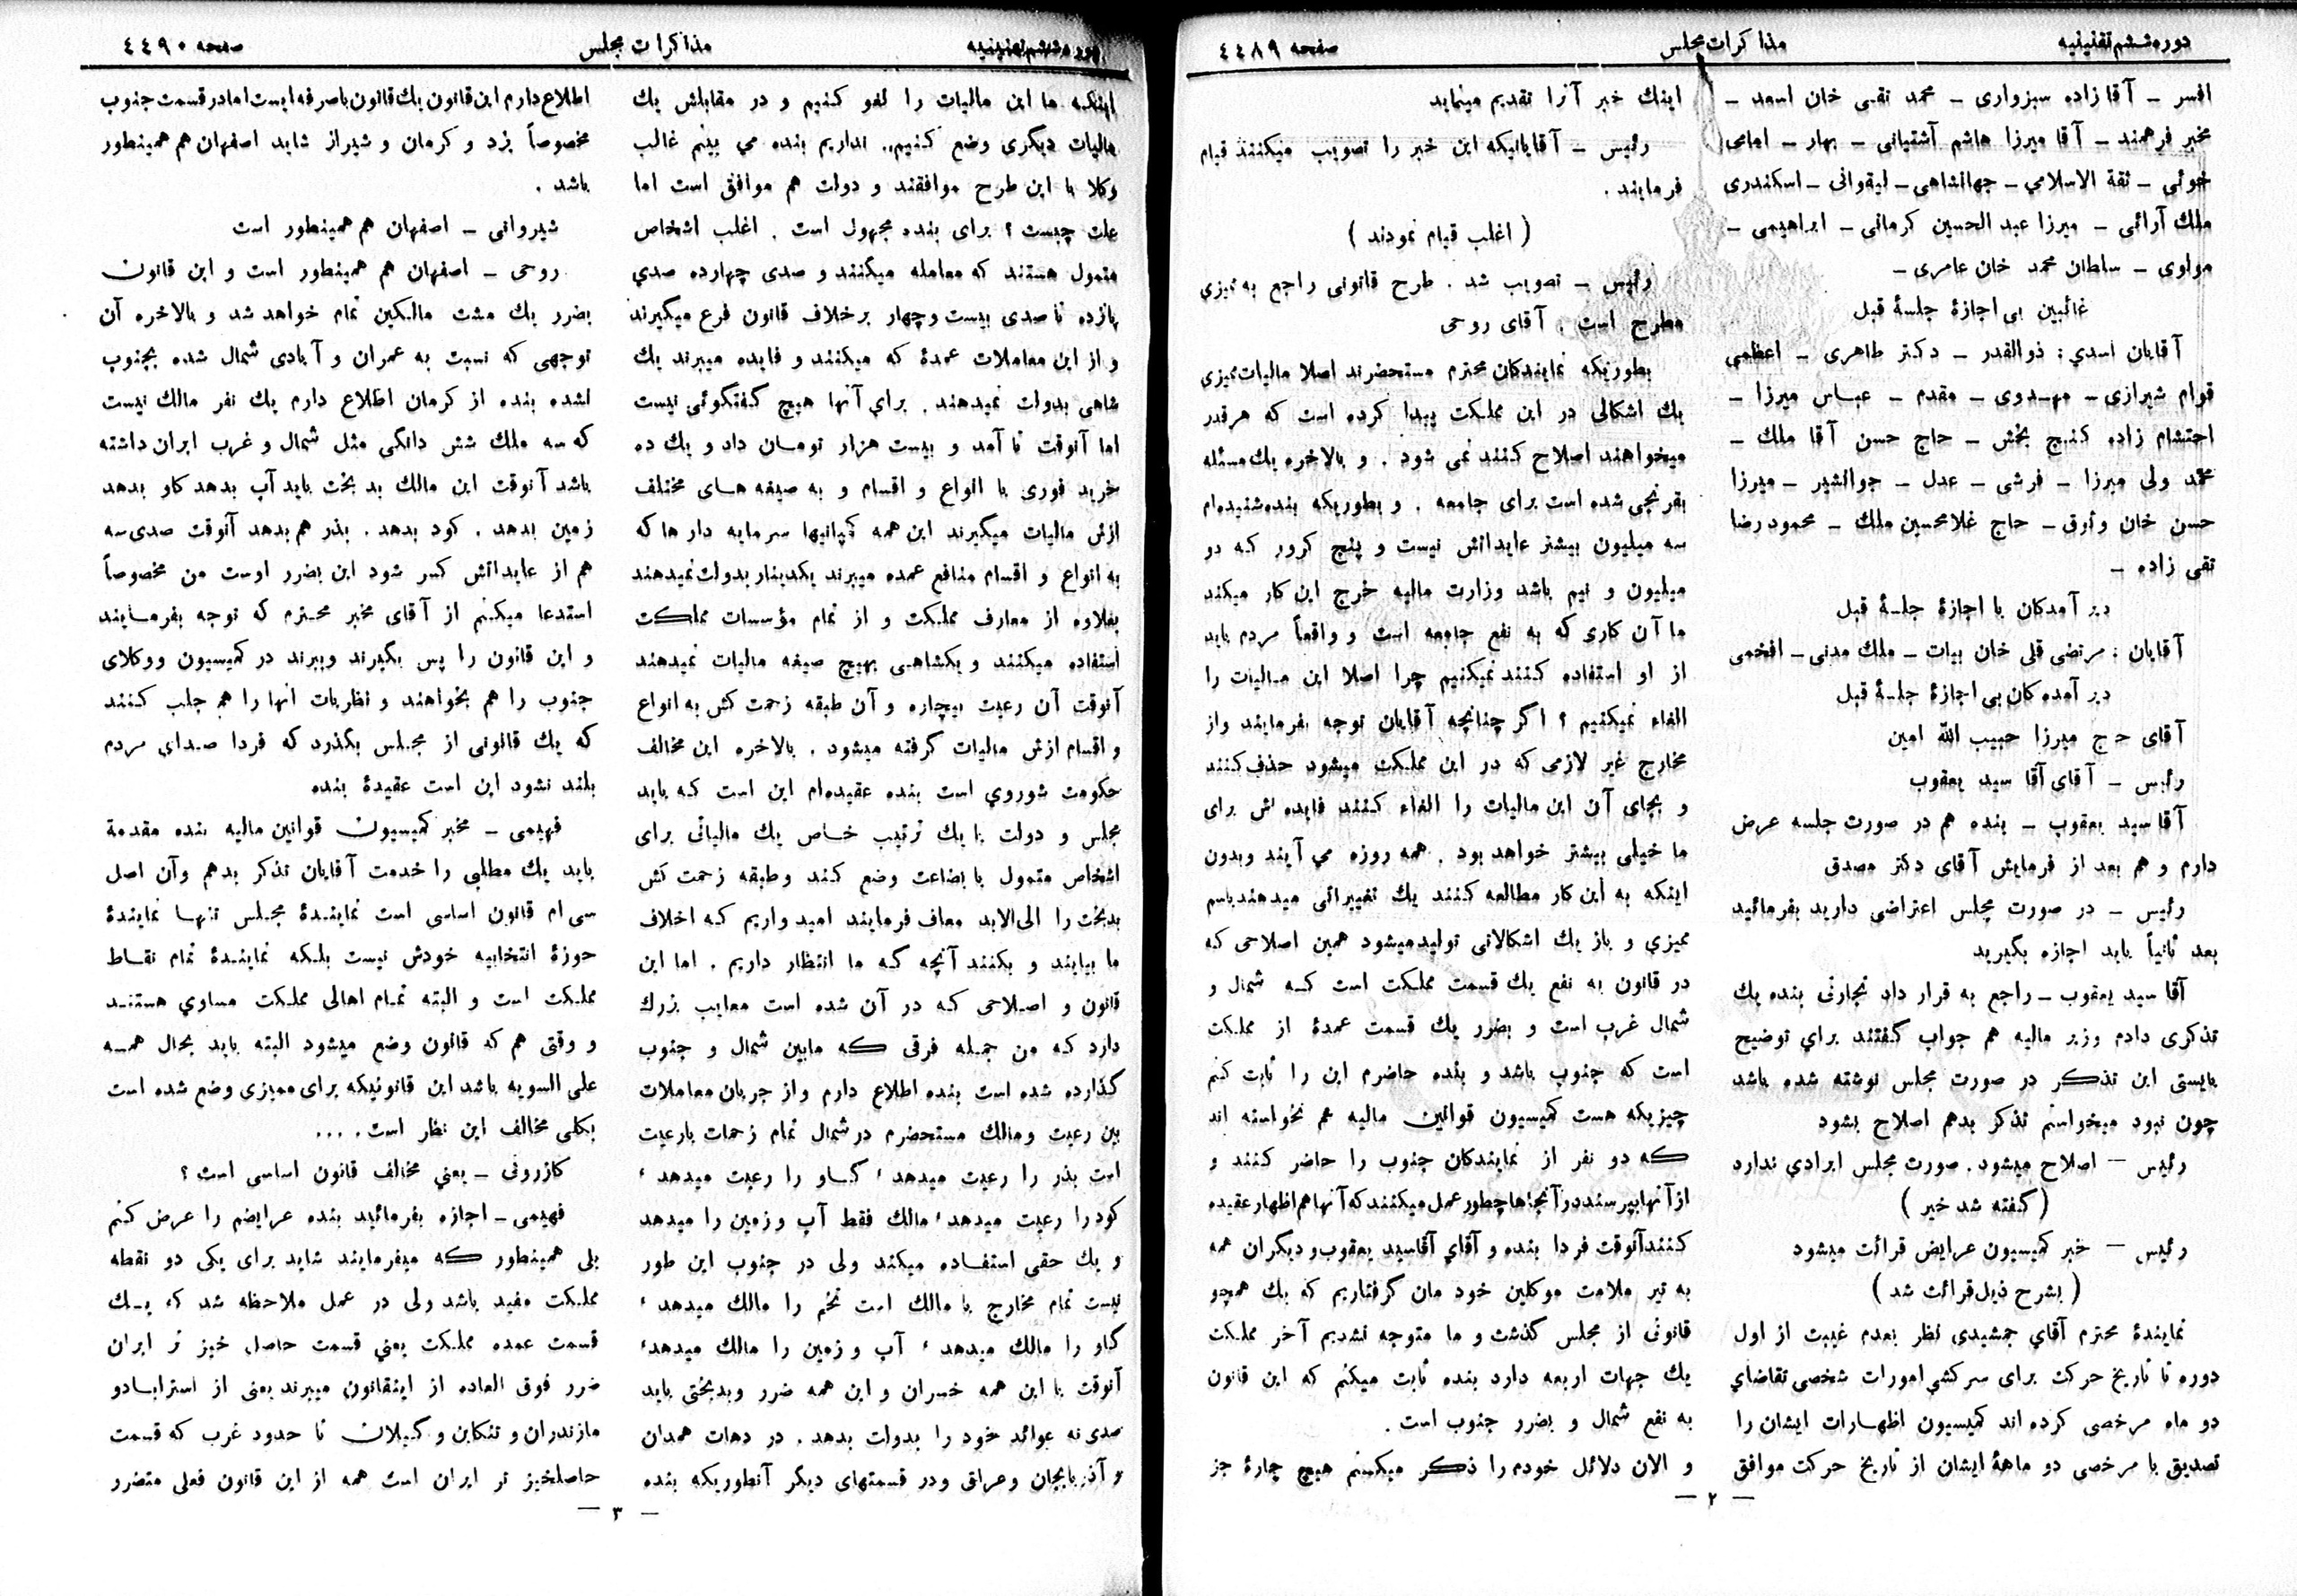 دوره ششم تقنینیه
مذاکرات مجلس
صفحه ٤٤٨٩
افسر ـ آقا زاده سبزواری ـ محمد تقی خان اسعد ـ
مخبر فرهمند ـ آقا میرزا هاشم آشتیانی ـ بهار ـ امامی
خوئی ـ ثقة الاسلامي ـ جهانشاهی ـ لیقوانی ـ اسکندری
ملك آرائی ـ میرزا عبد الحسین کرمانی ـ ابراهیمی ـ
مولوی ـ سلطان محمد خان عامری ـ
غائبین بی اجازهٔ جلسهٔ قبل
آقایان اسدي : ذوالقدر ـ دکتر طاهری ـ اعظمی
قوام شیرازی ـ مهدوی ـ مقدم ـ عباس میرزا ـ
احتشام زاده گنج بخش ـ حاج حسن آقا ملك ـ
محمد ولی میرزا ـ فرشی ـ عدل ـ جوانشیر ـ میرزا
حسن خان وثوق ـ حاج غلامحسین ملك ـ محمود رضا
تقی زاده ـ
دیر آمدگان با اجازهٔ جلسهٔ قبل
آقایان : مرتضی قلی خان بیات ـ ملك مدنی ـ افخمی
دیر آمده گان بی اجازهٔ جلسهٔ قبل
آقای حاج میرزا حبیب الله امین
رئیس ـ آقای آقا سید یعقوب
آقا سید یعقوب ـ بنده هم در صورت جلسه عرض
دارم و هم بعد از فرمایش آقای دکتر مصدق
رئیس ـ در صورت مجلس اعتراضی دارید بفرمائید
بعد ثانیاً باید اجازه بگیرید
آقا سید یعقوب ـ راجع به قرار داد تجارتی بنده یك
تذکری دادم وزیر مالیه هم جواب گفتند برای توضیح
بایستی این تذکر در صورت مجلس نوشته شده باشد
چون نبود میخواستم تذکر بدهم اصلاح بشود
رئیس ـ اصلاح میشود . صورت مجلس ایرادي ندارد
( گفته شد خیر )
رئیس ـ خبر کمیسیون عرایض قرائت میشود
( بشرح ذیل قرائت شد )
نمایندهٔ محترم آقاي جمشیدی نظر بعدم غیبت از اول
دوره تا تاریخ حرکت برای سرکشي امورات شخصی تقاضاي
دو ماه مرخصی کرده اند کمیسیون اظهارات ایشان را
تصدیق با مرخصی دو ماههٔ ایشان از تاریخ حرکت موافق
اینك خبر آنرا تقدیم مینماید
رئیس ـ آقایانیکه این خبر را تصویب میکنند قیام
فرمایند .
( اغلب قیام نمودند )
رئیس ـ تصویب شد . طرح قانونی راجع به ممیزي
مطرح است . آقای روحی
بطوریکه نمایندگان محترم مستحضرند اصلا مالیات ممیزی
یك اشکالی در این مملکت پیدا کرده است که هر قدر
میخواهند اصلاح کنند نمی شود . و بالاخره یك مسئله
بغرنجی شده است برای جامعه . و بطوریکه بنده شنیده ام
سه میلیون بیشتر عایداتش نیست و پنج کرور که دو
میلیون و نیم باشد وزارت مالیه خرج این کار میکند
ما آن کاری که به نفع جامعه است و واقعاً مردم باید
از او استفاده کنند نمیکنیم چرا اصلا این مالیات را
الغاء نمیکنیم ؟ اگر چنانچه آقایان توجه بفرمایند و از
مخارج غیر لازمی که در این مملکت میشود حذف کنند
و بجای آن این مالیات را الغاء کنند فایده اش برای
ما خیلی بیشتر خواهد بود . همه روزه مي آیند و بدون
اینکه به این کار مطالعه کنند یك تغییراتی میدهند باسم
ممیزي و باز یك اشکالاتی تولید میشود همین اصلاحی که
در قانون به نفع یك قسمت مملکت است که شمال و
شمال غرب است و بضرر یك قسمت عمدهٔ از مملکت
است که جنوب باشد و بنده حاضرم این را ثابت کنم
چیزیکه هست کمیسیون قوانین مالیه هم نخواسته اند
که دو نفر از نمایندگان جنوب را حاضر کنند و
از آنها بپرسند در آنجاها چطور عمل میکنند که آنها هم اظهار عقیده
کنند آنوقت فردا بنده و آقاي آقا سید یعقوب و دیگران همه
به تیر ملامت موکلین خود مان گرفتاریم که یك همچو
قانونی از مجلس گذشت و ما متوجه نشدیم آخر مملکت
یك جهات اربعه دارد بنده ثابت میکنم که این قانون
به نفع شمال و بضرر جنوب است .
و الان دلائل خودم را ذکر میکنم هیچ چارهٔ جز
ـ ٢ ـ
دوره ششم تقنینیه
مذاکرات مجلس
صفحه ٤٤٩٠
اینکه ما این مالیات را لغو کنیم و در مقابلش یك
مالیات دیگری وضع کنیم، نداریم بنده مي بینم غالب
وکلا با این طرح موافقند و دولت هم موافق است اما
علت چیست ؟ برای بنده مجهول است . اغلب اشخاص
متمول هستند که معامله میکنند و صدی چهارده صدي
پانزده تا صدی بیست و چهار بر خلاف قانون فرع میگیرند
و از این معاملات عمدهٔ که میکنند و فایده میبرند یك
شاهی بدولت نمیدهند . براي آنها هیچ گفتگوئی نیست
اما آنوقت تا آمد و بیست هزار تومان داد و یك ده
خرید فوری با انواع و اقسام و به صیغه های مختلف
ازش مالیات میگیرند این همه کمپانیها سرمایه دار ها که
به انواع و اقسام منافع عمده میبرند یکدینار بدولت نمیدهند
بعلاوه از معارف مملکت و از تمام مؤسسات مملکت
استفاده میکنند و یکشاهی بهیچ صیغه مالیات نمیدهند
آنوقت آن رعیت بیچاره و آن طبقه زحمت کش به انواع
و اقسام ازش مالیات گرفته میشود . بالاخره این مخالف
حکومت شوروي است بنده عقیده ام این است که باید
مجلس و دولت با یك ترتیب خاص یك مالیاتی برای
اشخاص متمول با بضاعت وضع کند و طبقه زحمت کش
بدبخت را الی الابد معاف فرمایند امید واریم که اخلاف
ما بیایند و بکنند آنچه که ما انتظار داریم . اما این
قانون و اصلاحی که در آن شده است معایب بزرك
دارد که من جمله فرقی که مابین شمال و جنوب
گذارده شده است بنده اطلاع دارم و از جریان معاملات
بین رعیت و مالك مستحضرم در شمال تمام زحمات با رعیت
است بذر را رعیت میدهد ، گاو را رعیت میدهد ،
کود را رعیت میدهد ، مالك فقط آب و زمین را میدهد
و یك حقی استفاده میکند ولی در جنوب این طور
نیست تمام مخارج با مالك است تخم را مالك میدهد ،
گاو را مالك میدهد ، آب و زمین را مالك میدهد ،
آنوقت با این همه خسران و این همه ضرر و بدبختی باید
صدی نه عوائد خود را بدولت بدهد . در دهات همدان
و آذربایجان و عراق و در قسمتهای دیگر آنطوریکه بنده
اطلاع دارم این قانون یك قانون باصرفه ایست اما در قسمت جنوب
مخصوصاً یزد و کرمان و شیراز شاید اصفهان هم همینطور
باشد .
شیروانی ـ اصفهان هم همینطور است
روحی ـ اصفهان هم همینطور است و این قانون
بضرر یك مشت مالکین تمام خواهد شد و بالاخره آن
توجهی که نسبت به عمران و آبادی شمال شده بجنوب
نشده بنده از کرمان اطلاع دارم یك نفر مالك نیست
که سه ملك شش دانگی مثل شمال و غرب ایران داشته
باشد آنوقت این مالك بد بخت باید آب بدهد گاو بدهد
زمین بدهد . کود بدهد . بذر هم بدهد آنوقت صدی سه
هم از عایداتش کسر شود این بضرر اوست من مخصوصاً
استدعا میکنم از آقای مخبر محترم که توجه بفرمایند
و این قانون را پس بگیرند و ببرند در کمیسیون و وکلای
جنوب را هم بخواهند و نظریات آنها را هم جلب کنند
که یك قانونی از مجلس بگذرد که فردا صدای مردم
بلند نشود این است عقیدهٔ بنده
فهیمی ـ مخبر کمیسیون قوانین مالیه بنده مقدمة
باید یك مطلبی را خدمت آقایان تذکر بدهم و آن اصل
سی ام قانون اساسی است نمایندهٔ مجلس تنها نمایندهٔ
حوزهٔ انتخابیه خودش نیست بلکه نمایندهٔ تمام نقاط
مملکت است و البته تمام اهالی مملکت مساوي هستند
و وقتی هم که قانون وضع میشود البته باید بحال همه
علی السویه باشد این قانونیکه برای ممیزی وضع شده است
بکلی مخالف این نظر است . . . .
کازرونی ـ یعني مخالف قانون اساسی است ؟
فهیمی ـ اجازه بفرمائید بنده عرایضم را عرض کنم
بلی همینطور که میفرمایند شاید برای یکی دو نقطه
مملکت مفید باشد ولی در عمل ملاحظه شد که یك
قسمت عمده مملکت یعني قسمت حاصل خیز تر ایران
ضرر فوق العاده از اینقانون میبرند یعنی از استراباد و
مازندران و تنکابن و گیلان تا حدود غرب که قسمت
حاصلخیز تر ایران است همه از این قانون فعلی متضرر
ـ ٣ ـ